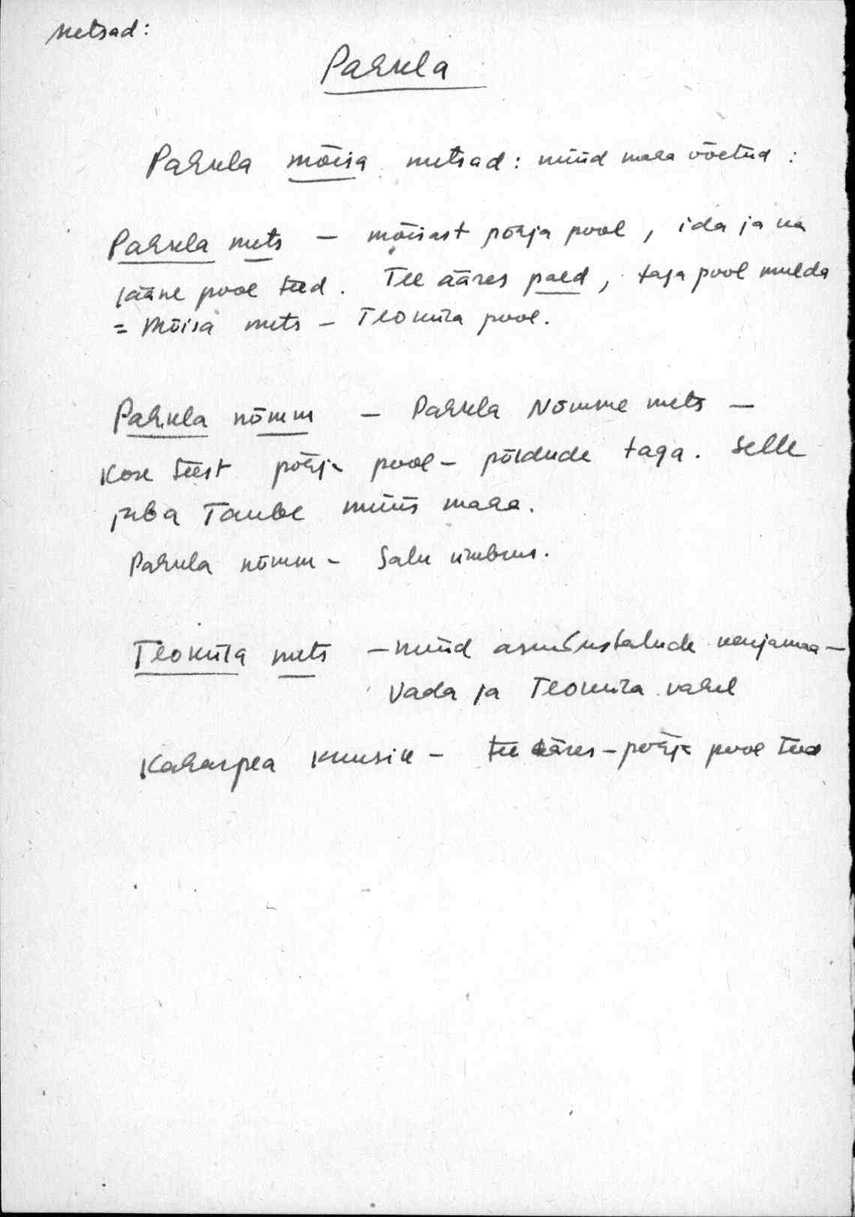 Metsad:
Pahkla
Pahkla mõisa metsad: nüüd maha võetud:
Pahkla mets — mõisast põhja pool, ida ja ka
lääne pool teed. Tee ääres paed, taga pool mulda
= Mõisa mets — Teoküla pool.
Pahkla nõmm — Pahkla Nõmme mets —
Kose teest põhja pool — põldude taga. Selle
juba Taube müüs maha.
Pahkla nõmm — Salu ümbrus.
Teoküla mets — nüüd asundustalude
Vada ja Teoküla vahel
Kaharpea kuusik — tee ääres — põhja pool teed